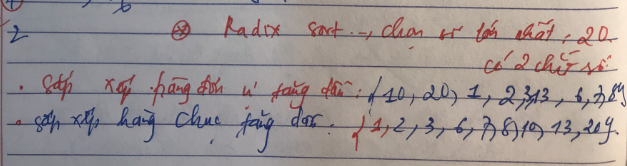 2 ⊛ Radix sort → chọn số lớn nhất: 20
có 2 chữ số
• sắp xếp hàng đơn vị tăng dần: {10, 20, 1, 2, 3, 13, 6, 7, 8}
• sắp xếp hàng chục tăng dần: {1, 2, 3, 6, 7, 8, 10, 13, 20}